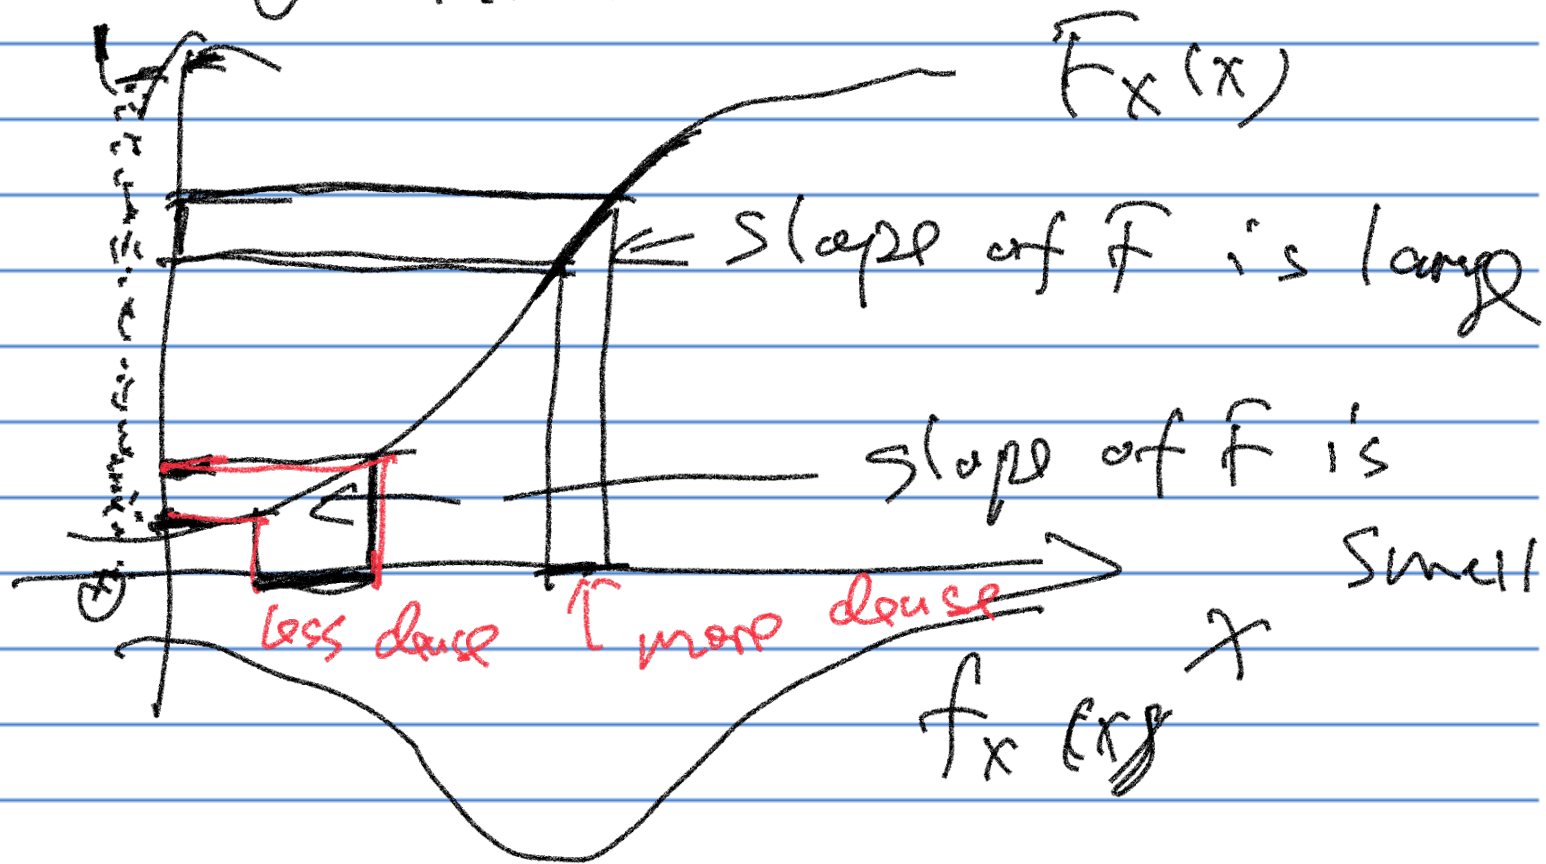 F_X(x)
slope of F is large
slope of F is
small
less dense
more dense
x
f_X(x)